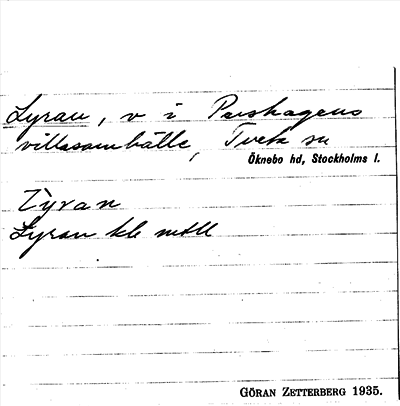 Lyran, v i Pershagens
villasamhälle, Tveta sn
Öknebo hd, Stockholms l.
Lyran
Lyran kb mtll
GÖRAN ZETTERBERG 1935.